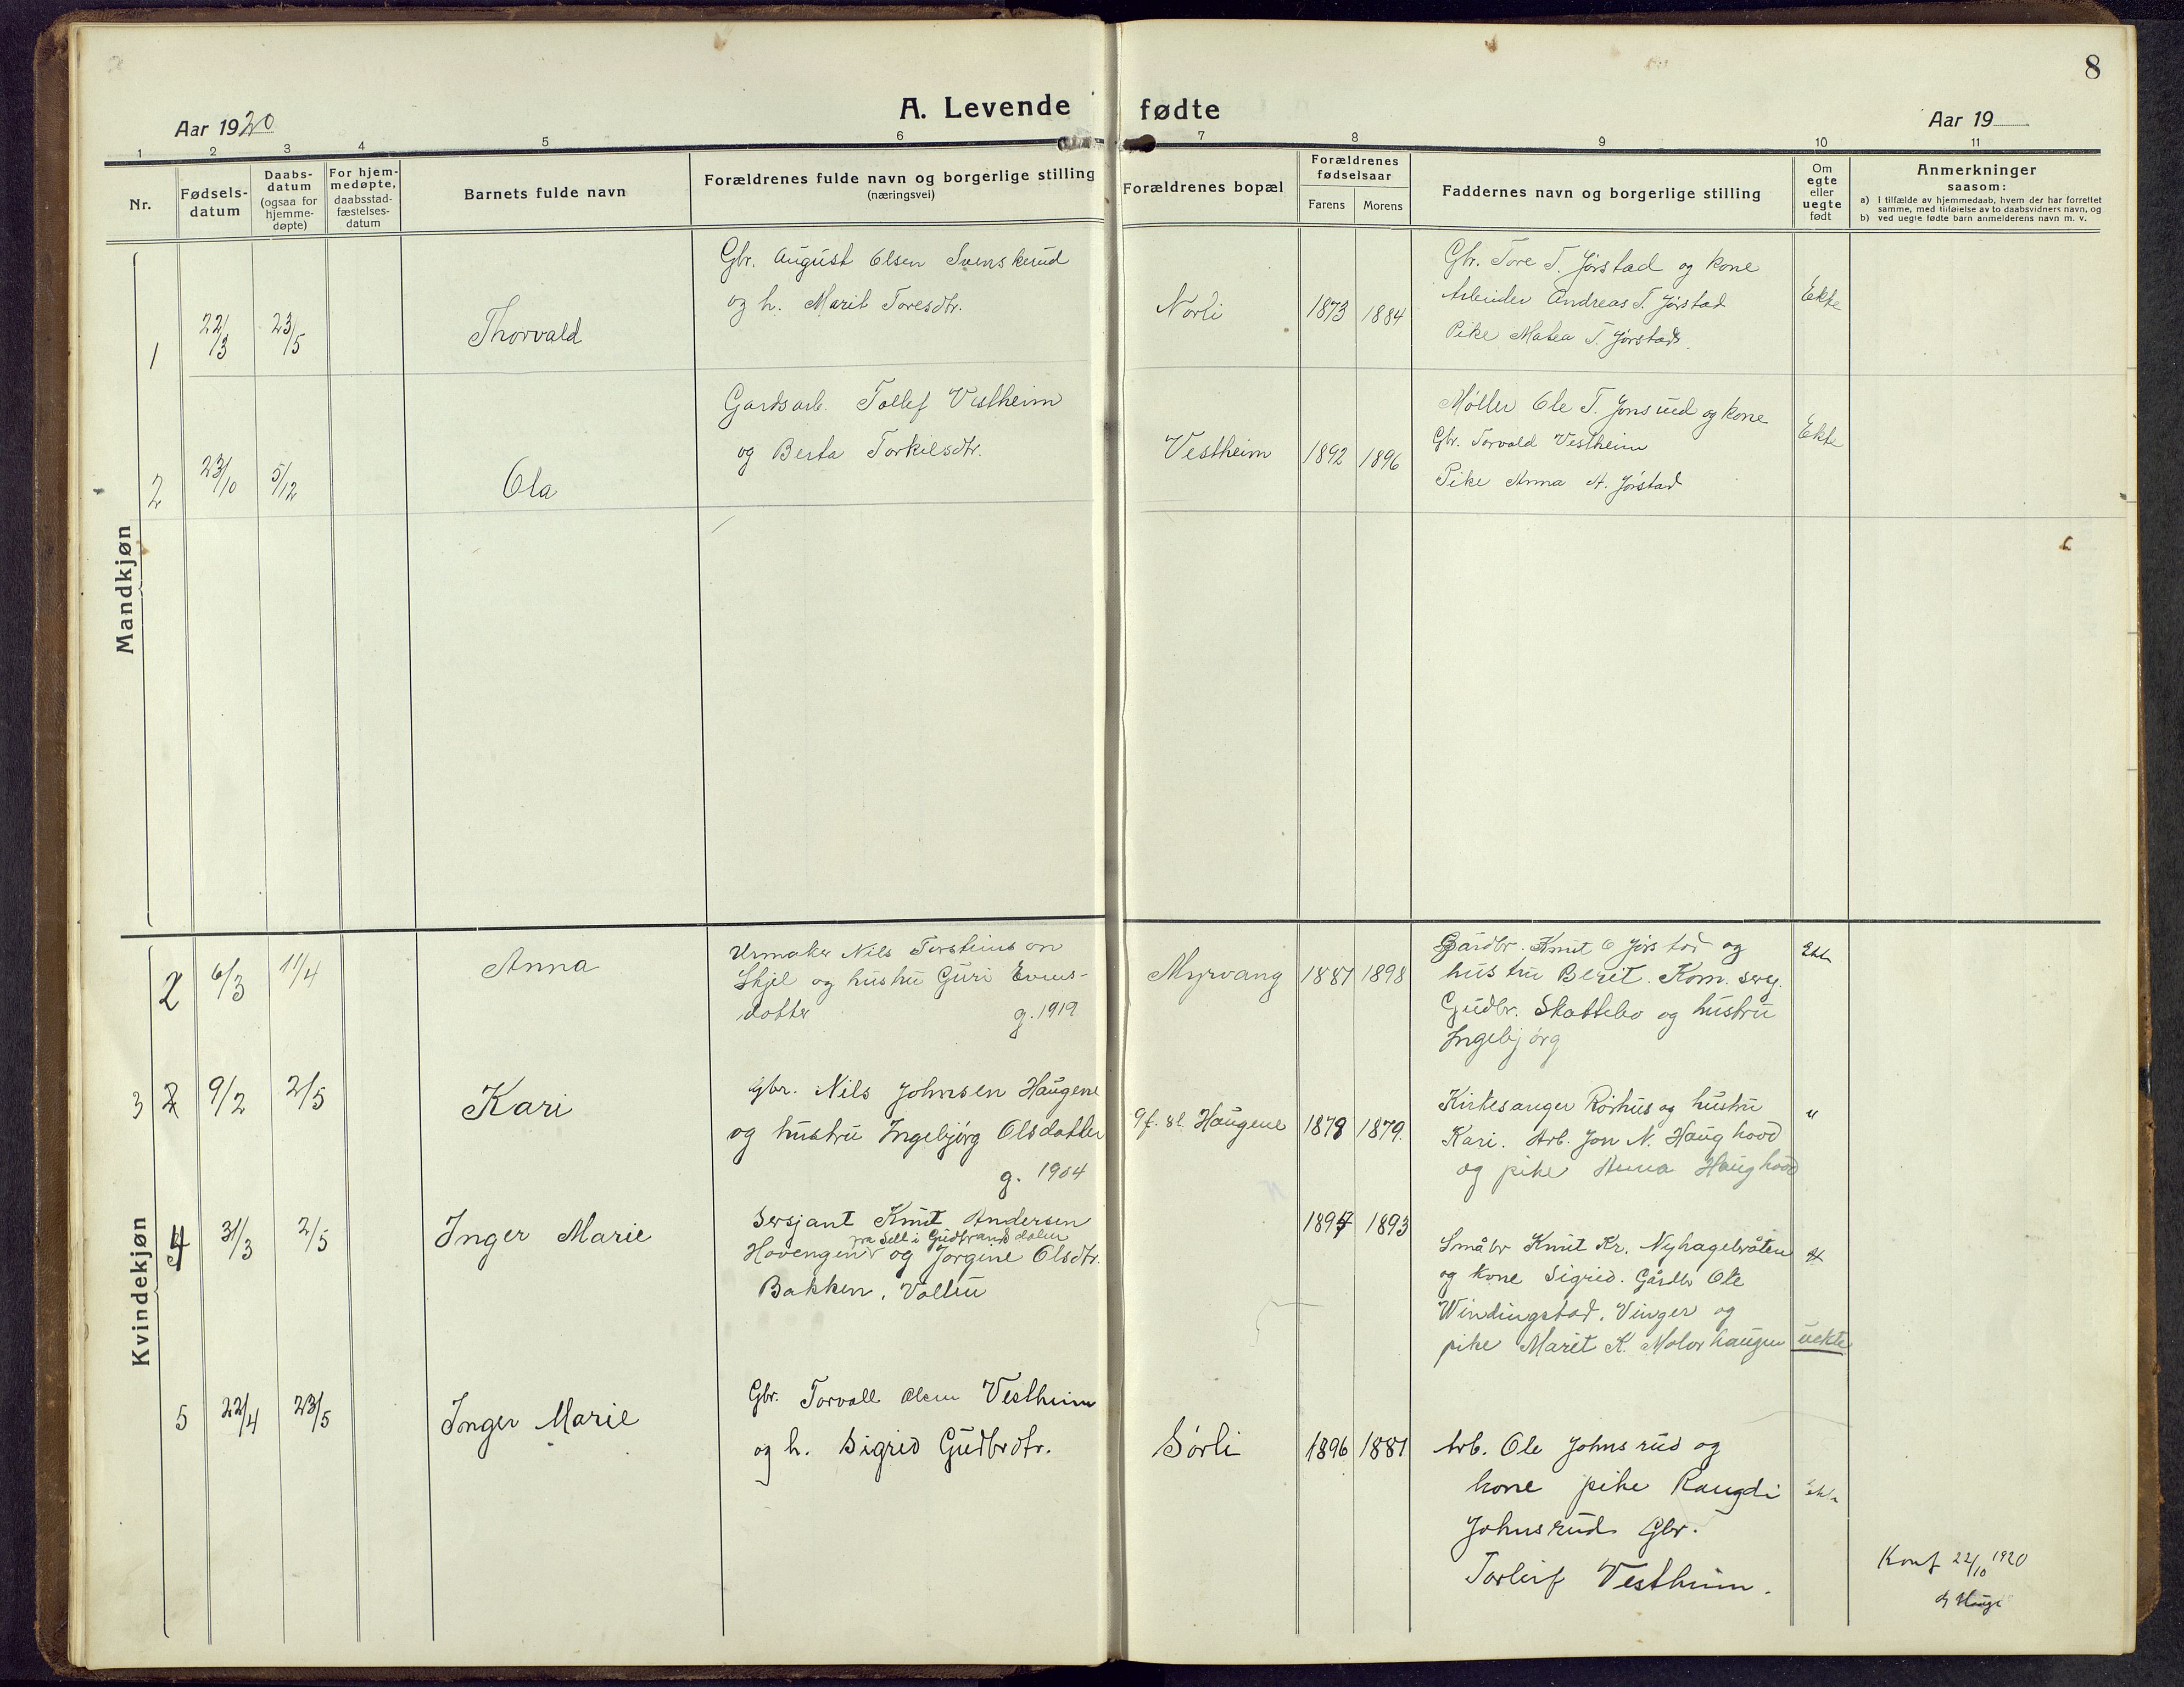 8
A. Levende fødte
Aar 1920
Aar 19
1 2 3 4 5 6 7 8 9 10 11
Nr.
Fødsels-
datum
Daabs-
datum
(ogsaa for
hjemme-
døpte)
For hjem-
medøpte,
daabsstad-
fæstelses-
datum
Barnets fulde navn
Forældrenes fulde navn og borgerlige stilling
(næringsvei)
Forældrenes bopæl
Forældrenes
fødselsaar
Farens Morens
Faddernes navn og borgerlige stilling
Om
egte
eller
uegte
født
Anmerkninger
saasom:
a) i tilfælde av hjemmedaab, hvem der har forrettet
samme, med tilføielse av to daabsvidners navn, og
b) ved uegte fødte barn anmelderens navn m. v.
Mandkjøn
1 22/3 23/5 Thorvald
Gbr. August Olsen Svenskerud
og h. Marit Toresdtr.
Norli 1873 1884
Gbr. Tore T. Jørstad og kone
Arbeider Andreas T. Jørstad
Pike Matea T. Jørstad.
Ekte
2 23/10 5/12 Ola
Gardsarb. Tollef Vestheim
og Berta Torkilsdtr.
Vestheim 1892 1896
Møller Ole T. Jonsrud og kone
Gbr. Torvald Vestheim
Pike Anna A. Jørstad
Ekte
Kvindekjøn
2 6/3 11/4 Anna
Urmaker Nils Torsteinson
Skjel og hustru Guri Evens-
datter g. 1919
Myrvang 1887 1898
Gårdbr. Knut O Jørstad og
hustru Berit. Kom. serg.
Gudbr. Skattebo og hustru
Ingebjørg
Ekte
3 2 9/2 2/5 Kari
Gbr. Nils Johnsen Haugene
og hustru Ingebjørg Olsdatter
g. 1904
9 f. sl. Haugene 1878 1879.
Kirkesanger Rørhus og hustru
Kari. Arb. Jon N. Haughovd
og pike Anna Haughovd
"
4 31/3 2/5 Inger Marie
Sersjant Knut Andersen
fra Sell i Gudbrandsdalen
Hovengen og Jørgine Olsdtr.
Bakken, Vollen
1897 1893
Småbr Knut Kr. Nyhagebråten
og kone Sigrid. Gårdbr Ole
Windingstad. Vinger og
pike Marit K. Molorhaugen
uekte
5 22/4 23/5 Inger Marie
Gbr. Torvall Olsen Vestheim
og h. Sigrid Gudbrdtr.
Sørli 1896 1881
Arb. Ole Johnsrud og
kone pike Raugdi
Johnsrud Gbr.
Torleif Vestheim.
Ekte
Konf 22/10 1920